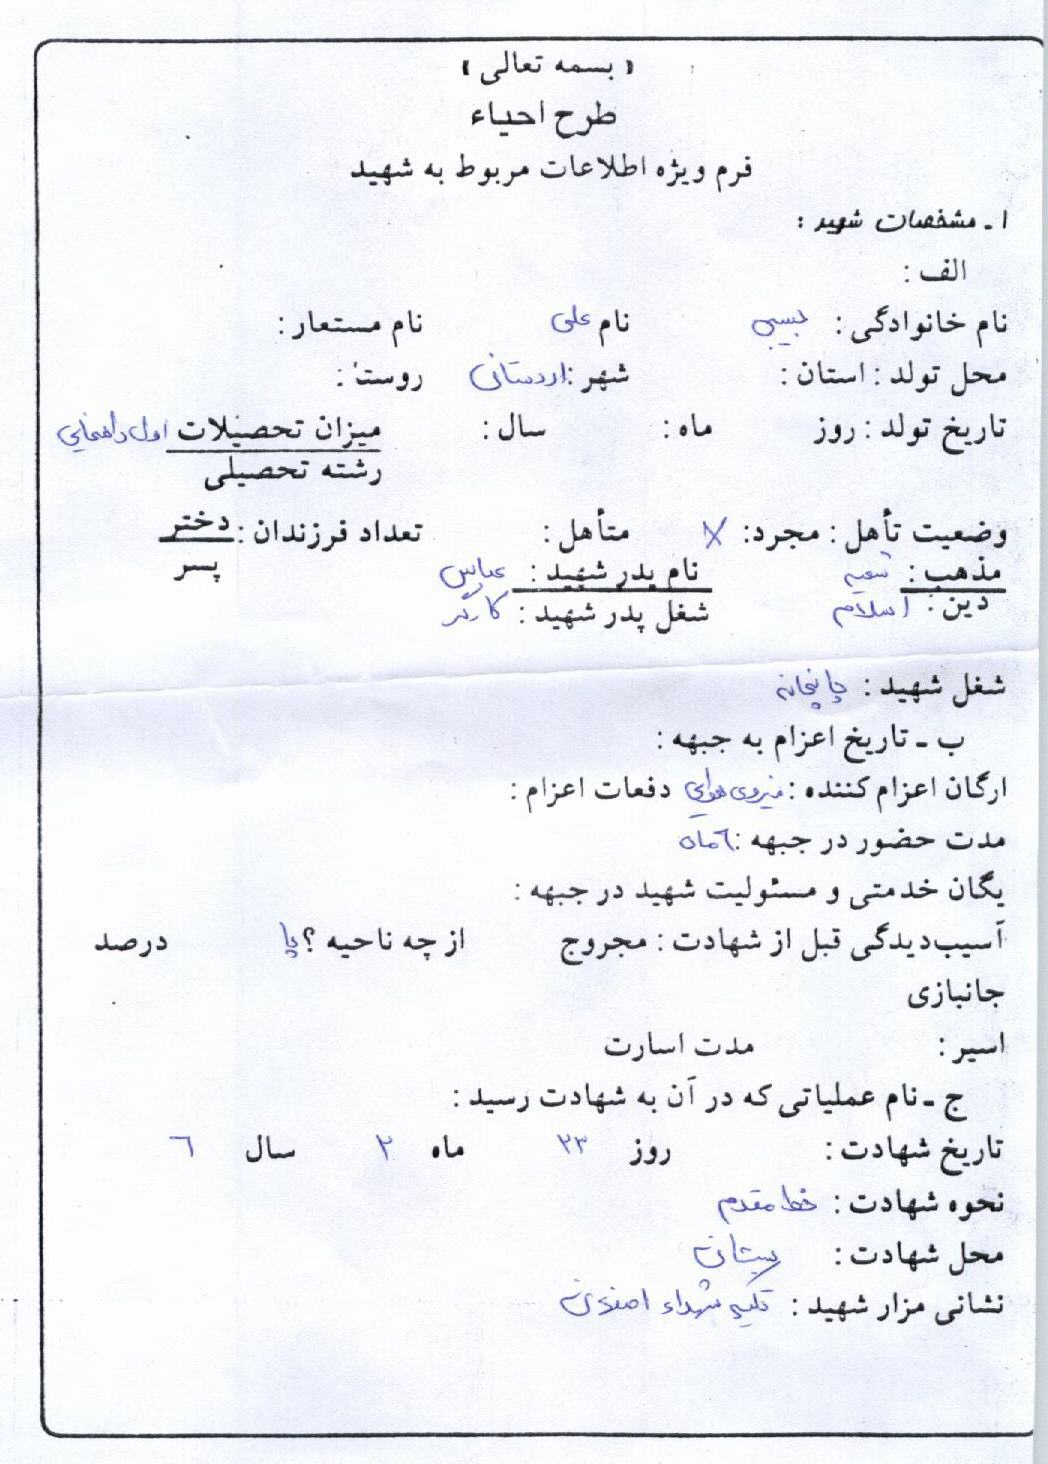 « بسمه تعالی »
طرح احیاء
فرم ویژه اطلاعات مربوط به شهید
۱ ـ مشخصات شهید :
الف :
نام خانوادگی : نام علی نام مستعار :
محل تولد : استان : شهر : اردستان روستا :
تاریخ تولد : روز ماه : سال : میزان تحصیلات اول راهنمایی
رشته تحصیلی
وضعیت تأهل : مجرد : X متأهل : تعداد فرزندان : دختر
پسر
مذهب : شیعه نام پدر شهید : عباس
دین : اسلام شغل پدر شهید : کارگر
شغل شهید : چاپخانه
ب ـ تاریخ اعزام به جبهه :
ارگان اعزام کننده : نیروی هوایی دفعات اعزام :
مدت حضور در جبهه : ٦ ماه
یگان خدمتی و مسئولیت شهید در جبهه :
آسیب‌دیدگی قبل از شهادت : مجروح از چه ناحیه ؟ پا درصد
جانبازی
اسیر : مدت اسارت
ج ـ نام عملیاتی که در آن به شهادت رسید :
تاریخ شهادت : روز ۲۳ ماه ۲ سال ٦
نحوه شهادت : خط مقدم
محل شهادت :
نشانی مزار شهید : تکیه شهداء اصفهان